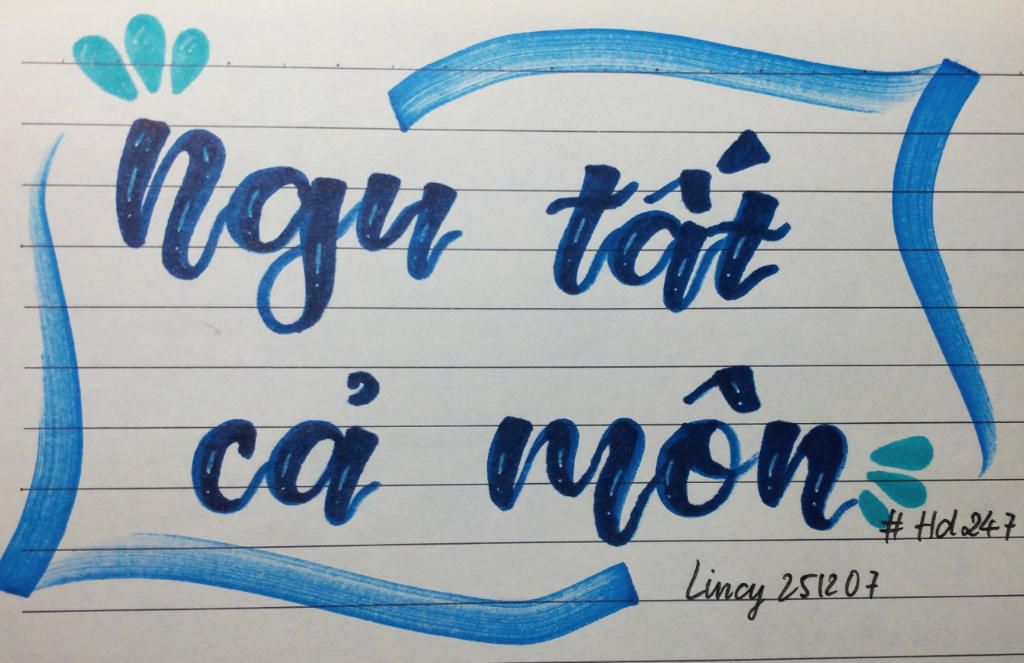 Ngu tất
cả môn
# Hd247
Lincy 251207